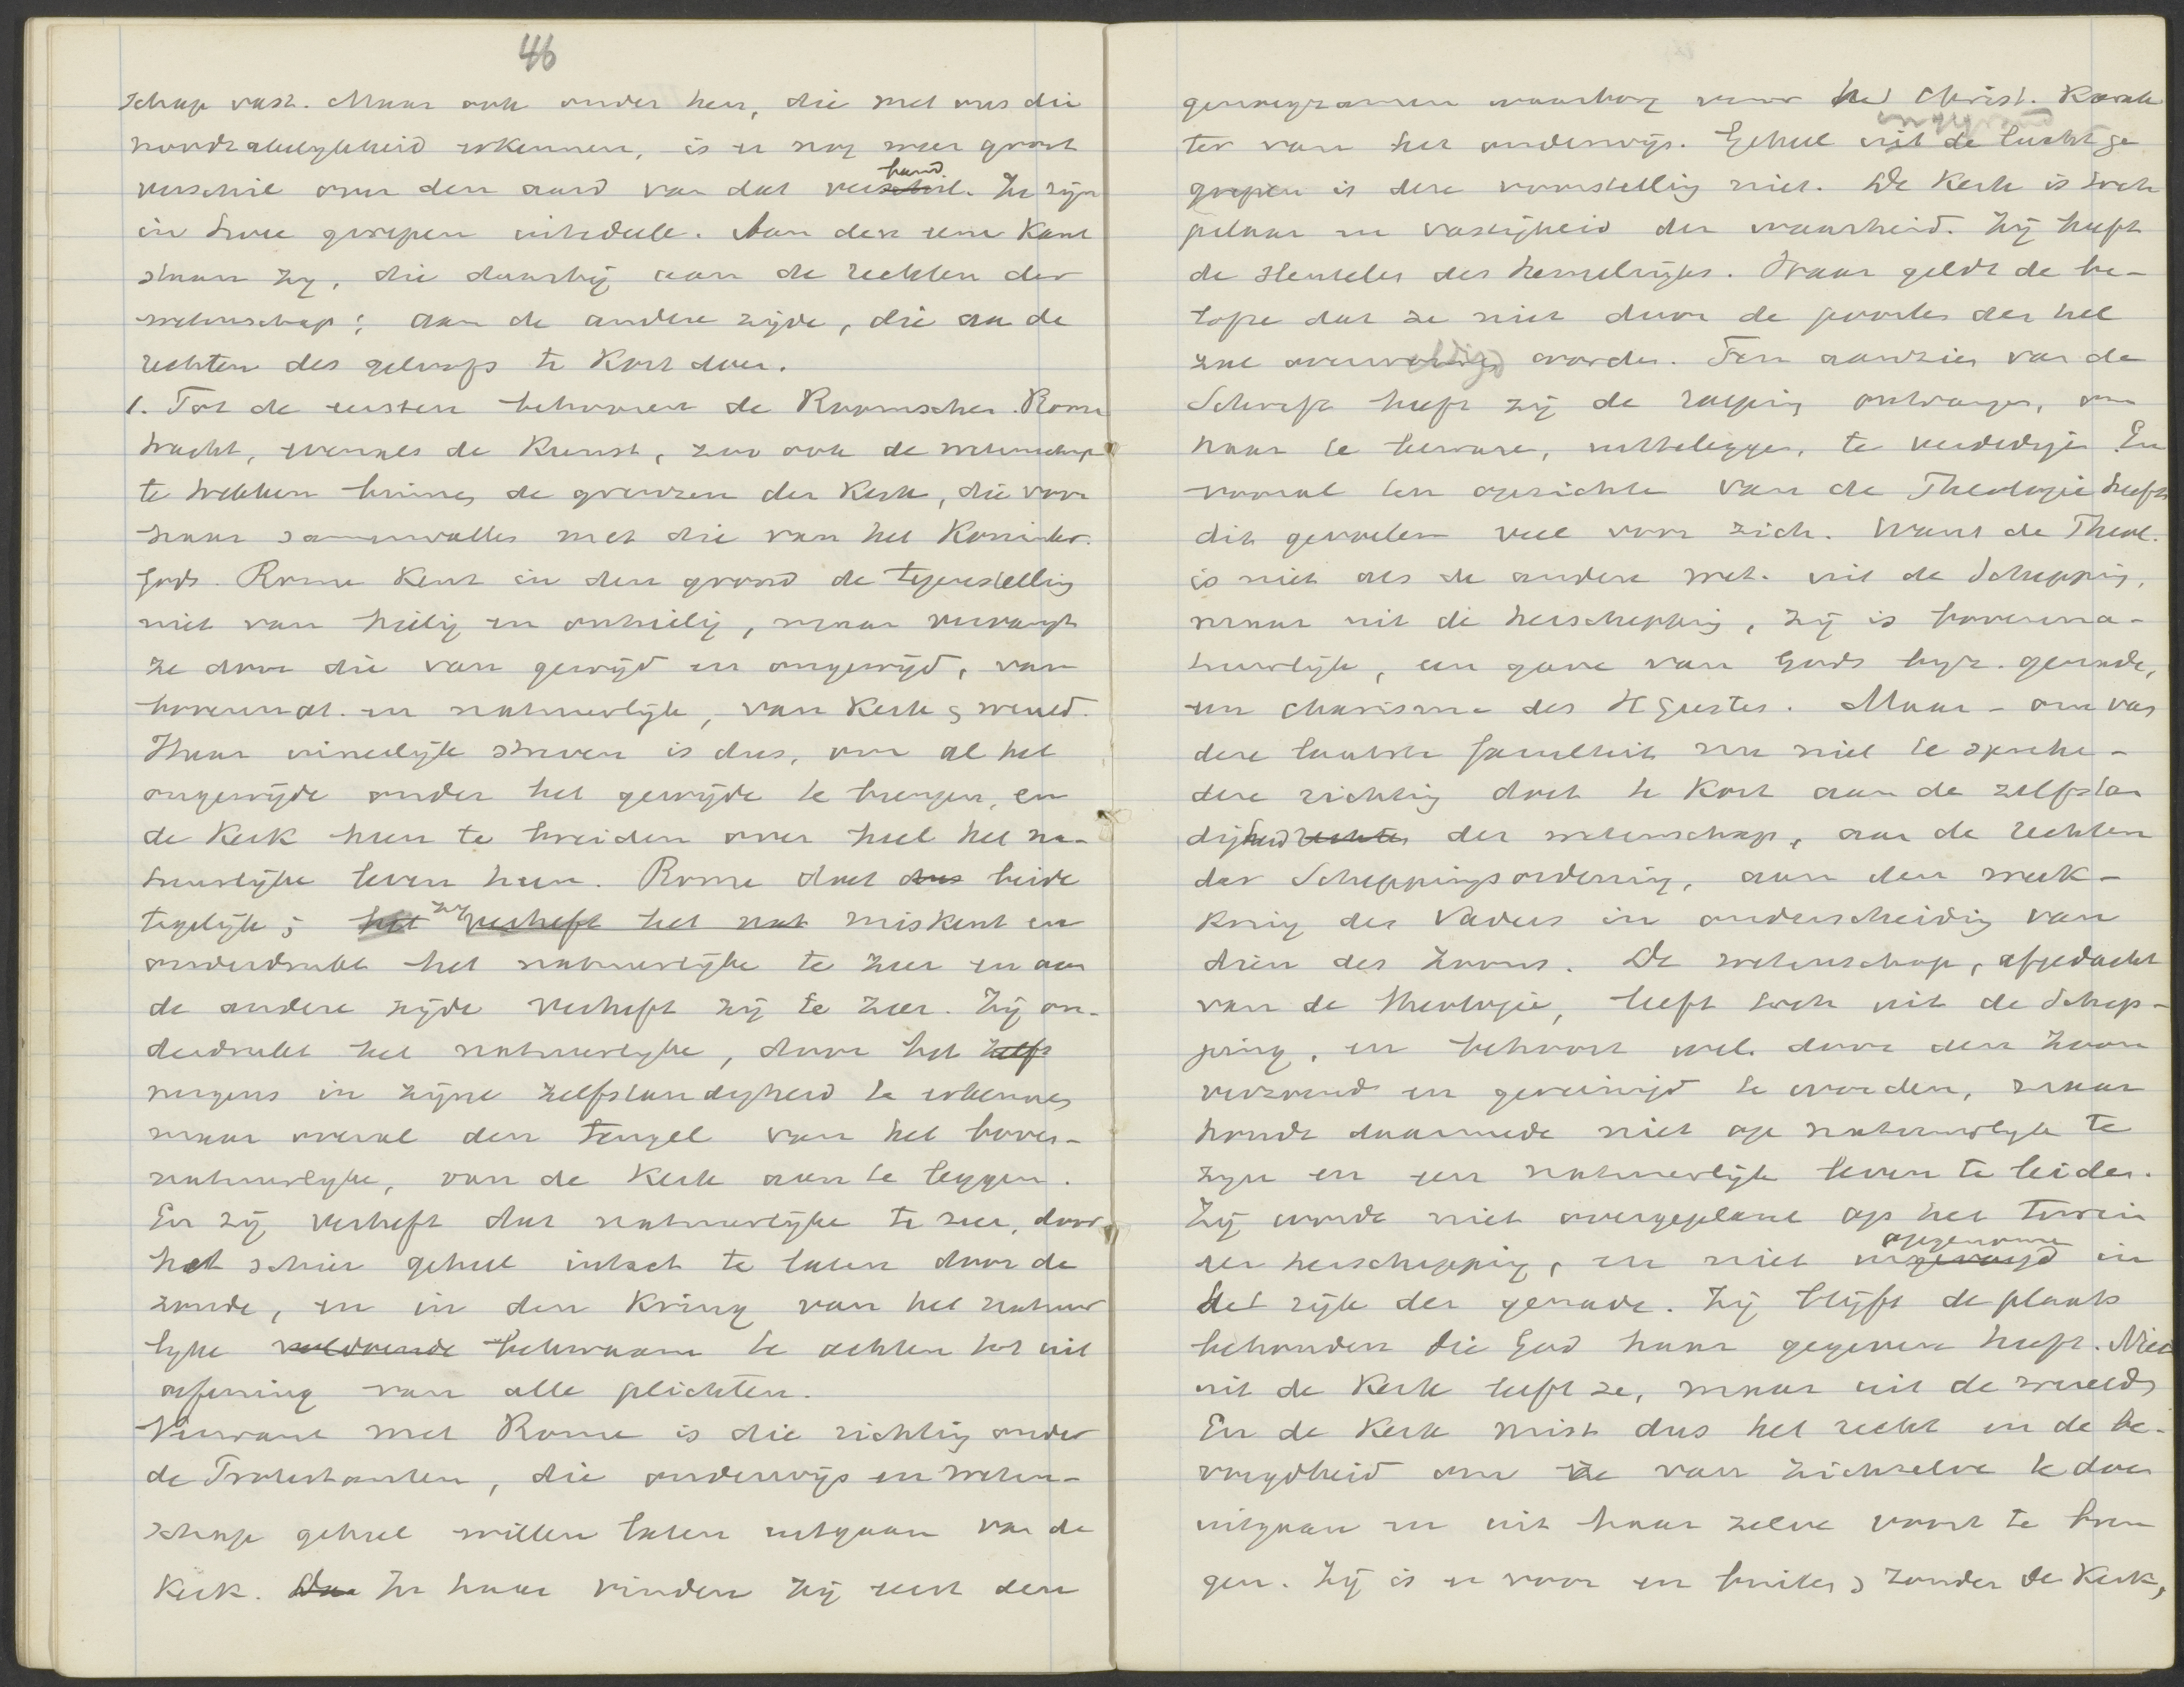 46
schap vast. Maar ook onder hen, die met ons die
noodzakelijkheid erkennen, is er nog zeer groot
verschil over den aard van dat verband. Ze zijn
in twee groepen intedeele. Aan den eene kant
staan zij, die daarbij aan de rechten der
wetenschap; aan de andere zijde, die aan de
rechten des geloofs te kort doen.
1. Tot de eersten behooren de Roomschen. Rome
tracht, evenals de Kunst, zoo ook de wetenschap
te trekken binnen de grenzen der Kerk, die voor
haar samenvallen met die van het Koninkr.
Gods. Rome kent in den grond de tegenstelling
niet van heilig en onheilig, maar vervangt
ze door die van gewijd en ongewijd, van
bovennat. en natuurlijk, van Kerk & wereld.
Haar eindelijk streven is dus, om al het
ongewijde onder het gewijde te brengen, en
de Kerk heen te breiden over heel het na-
tuurlijke leven heen. Rome doet dus beide
tegelijk; het zij verheft het nat miskent en
onderdrukt het natuurlijke te zeer en aan
de andere zijde verheft zij te zeer. Zij on-
derdrukt het natuurlijke, door het zelfs
nergens in zijne zelfstandigheid te erkennen
maar overal den teugel van het boven-
natuurlijke, van de Kerk aan te leggen.
En zij verheft dat natuurlijke te zeer, door
het schier geheel intact te laten door de
zonde, en in den kring van het natuur
lijke voldoende bekwaam te achten tot uit
oefening van alle plichten.
Verwant met Rome is die richting onder
de Protestanten, die onderwijs en weten-
schap geheel willen laten uitgaan van de
Kerk. In haar vinden zij eerst den
genoegzamen waarborg voor het Christ. Karak
ter van het onderwijs. Geheel uit de lucht ge
grepen is deze voorstelling niet. De Kerk is toch
pilaar en vastigheid der waarheid. Zij heeft
de sleutelen des hemelrijks. Haar geldt de be-
lofte dat ze niet door de poorten der hel
zal overweldigd worden. Ten aanzien van de
Schrift heeft zij de roeping ontvangen, om
haar te beware, uitteleggen, te verdedigen. En
vooral ten opzichte van de Theologie heeft
dit gevoelen veel voor zich. Want de Theol.
is niet als de andere wet. uit de Schepping,
maar uit de herschepping, zij is bovenna-
tuurlijk, een gave van Gods byz. genade,
een charisma des H Geestes. Maar - om van
deze laatste faculteit nu niet te spreke -
deze richting doet te kort aan de zelfstan
digheid rechten der wetenschap, aan de rechten
der Scheppingsordening, aan den werk-
kring des Vaders in onderscheiding van
dien des Zoons. De wetenschap, afgedacht
van de theologie, leeft toch uit de Schep-
ping, en behoort wel door den Zoon
verzoend en gereinigd te worden, maar
houdt daarmede niet op natuurlijk te
zijn en een natuurlijk leven te leiden.
Zij wordt niet overgeplant op het terrein
der herschepping, en niet opgenomen in
het rijk der genade. Zij blijft de plaats
behouden die God haar gegeven heeft. Niet
uit de Kerk leeft ze, maar uit de wereld,
En de Kerk mist dus het recht en de be-
voegdheid om ze van zichzelve te doen
uitgaan en uit haar zelve voort te bren
gen. Zij is er voor en buiten & zonder de Kerk,